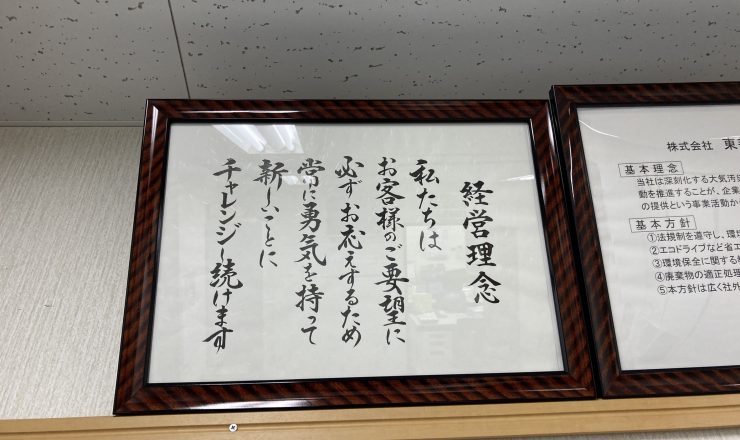 経営理念
私たちは
お客様のご要望に
必ずお応えするため
常に勇気を持って
新しいことに
チャレンジし続けます
株式会社 東
基本理念
当社は深刻化する大気汚
動を推進することが、企業
の提供という事業活動か
基本方針
①法規制を遵守し、環境
②エコドライブなど省エ
③環境保全に関する
④廃棄物の適正処理
⑤本方針は広く社外